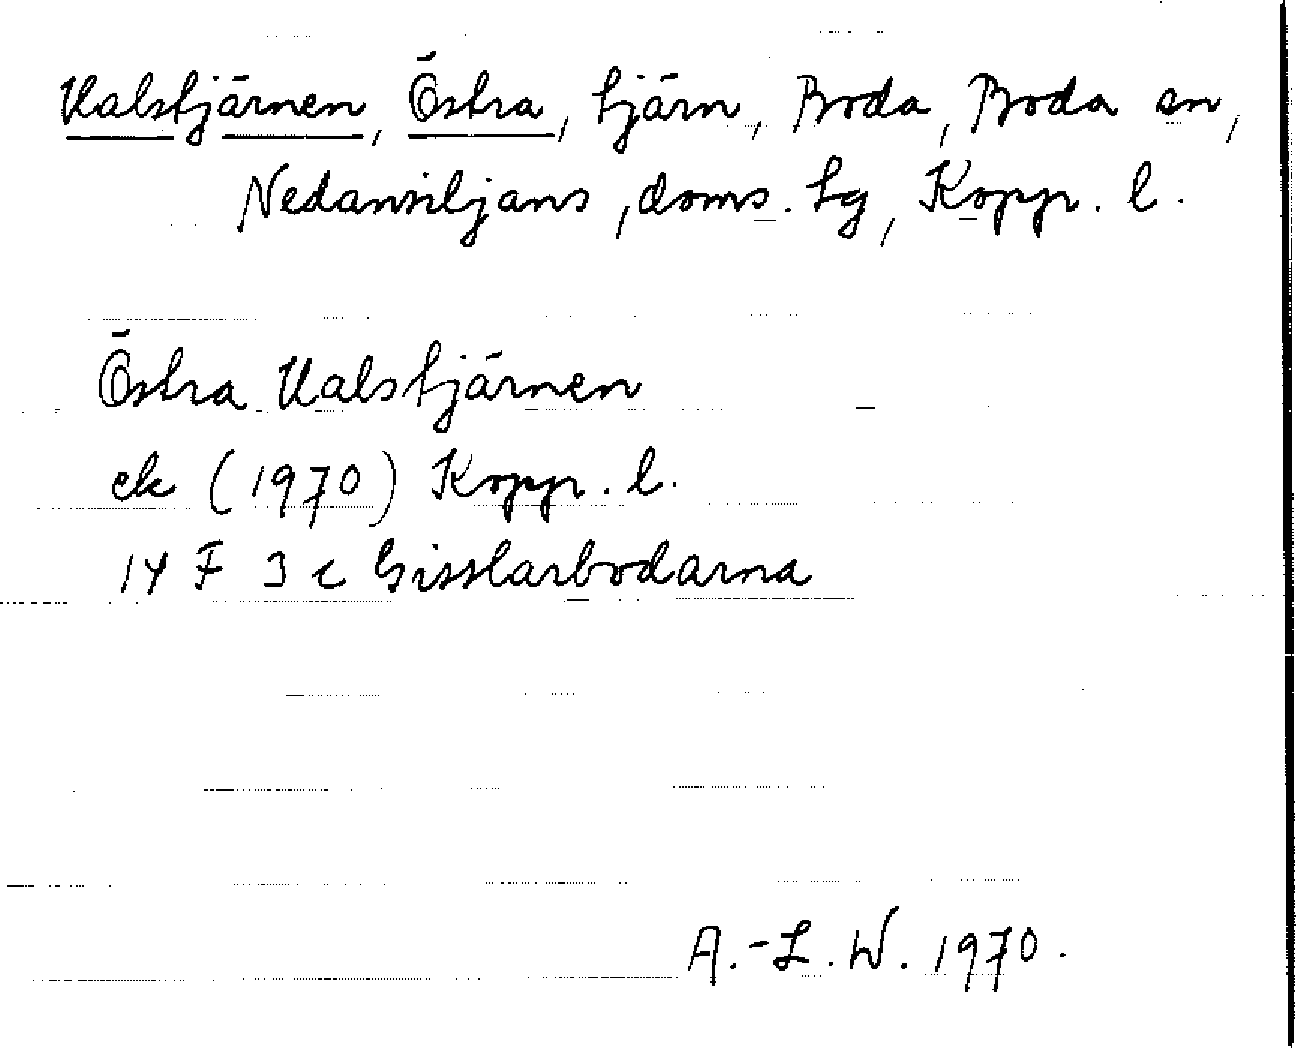 Valstjärnen, Östra, tjärn, Boda, Boda sn,
Nedansiljans, doms. tg, Kopp. l.
Östra Valstjärnen
ek (1970) Kopp. l.
14 F 3 c Gisslarbodarna
A.-L. W. 1970.